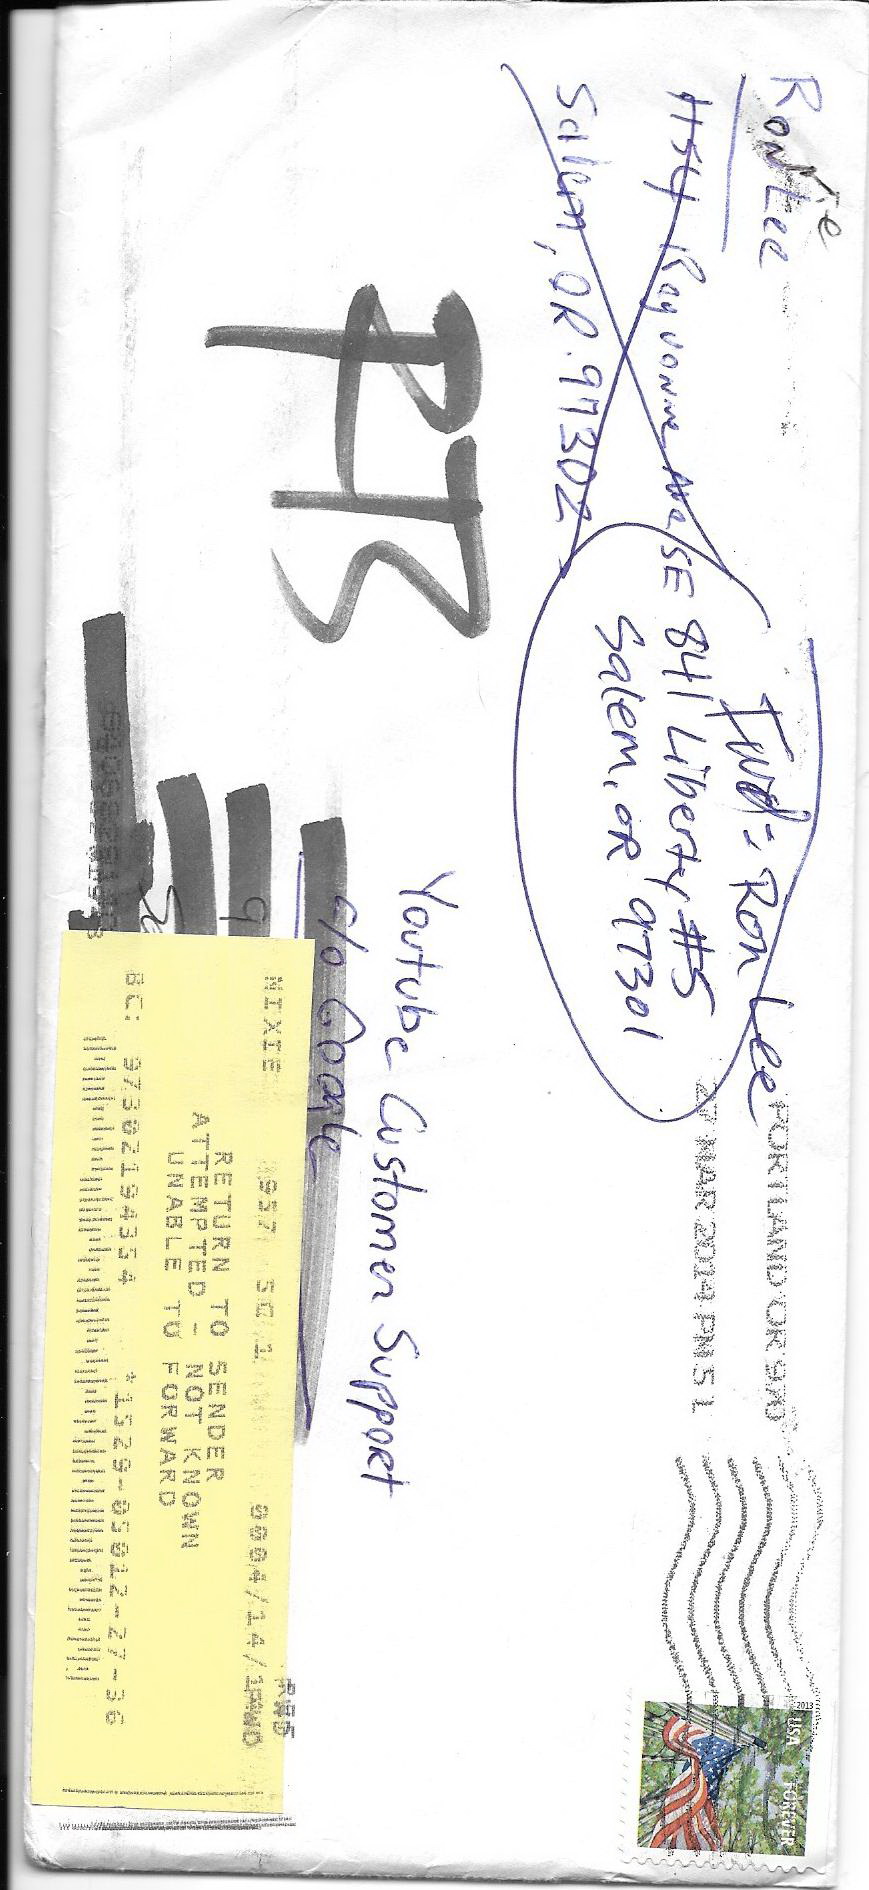 Ronnie Lee
1154 Rayvonne Ave SE
Salem, OR. 97302
Fwd: Ron Lee
841 Liberty #5
Salem, OR 97301
PORTLAND OR 970
27 MAR 2014 PM 5 L
2013
USA
FOREVER
Youtube Customer Support
c/o Google
9
NIXIE 957 SE 1
RETURN TO SENDER
ATTEMPTED - NOT KNOWN
UNABLE TO FORWARD
BC: 97302194354 *1529-05012-27-36